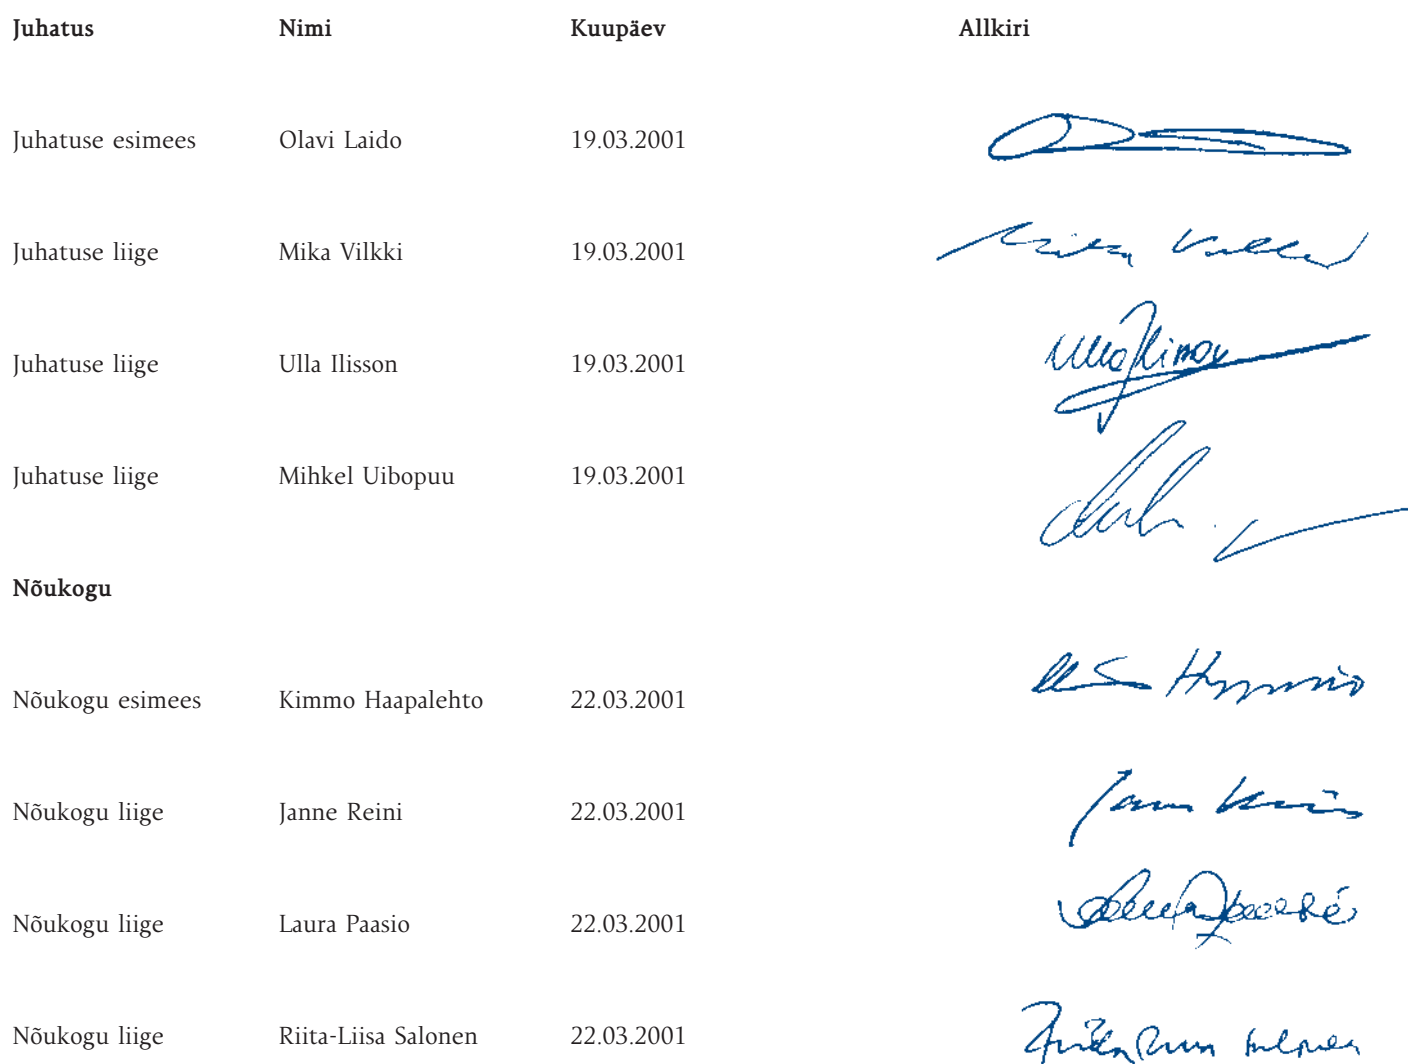 Juhatus Nimi Kuupäev Allkiri
Juhatuse esimees Olavi Laido 19.03.2001
Juhatuse liige Mika Vilkki 19.03.2001
Juhatuse liige Ulla Ilisson 19.03.2001
Juhatuse liige Mihkel Uibopuu 19.03.2001
Nõukogu
Nõukogu esimees Kimmo Haapalehto 22.03.2001
Nõukogu liige Janne Reini 22.03.2001
Nõukogu liige Laura Paasio 22.03.2001
Nõukogu liige Riita-Liisa Salonen 22.03.2001